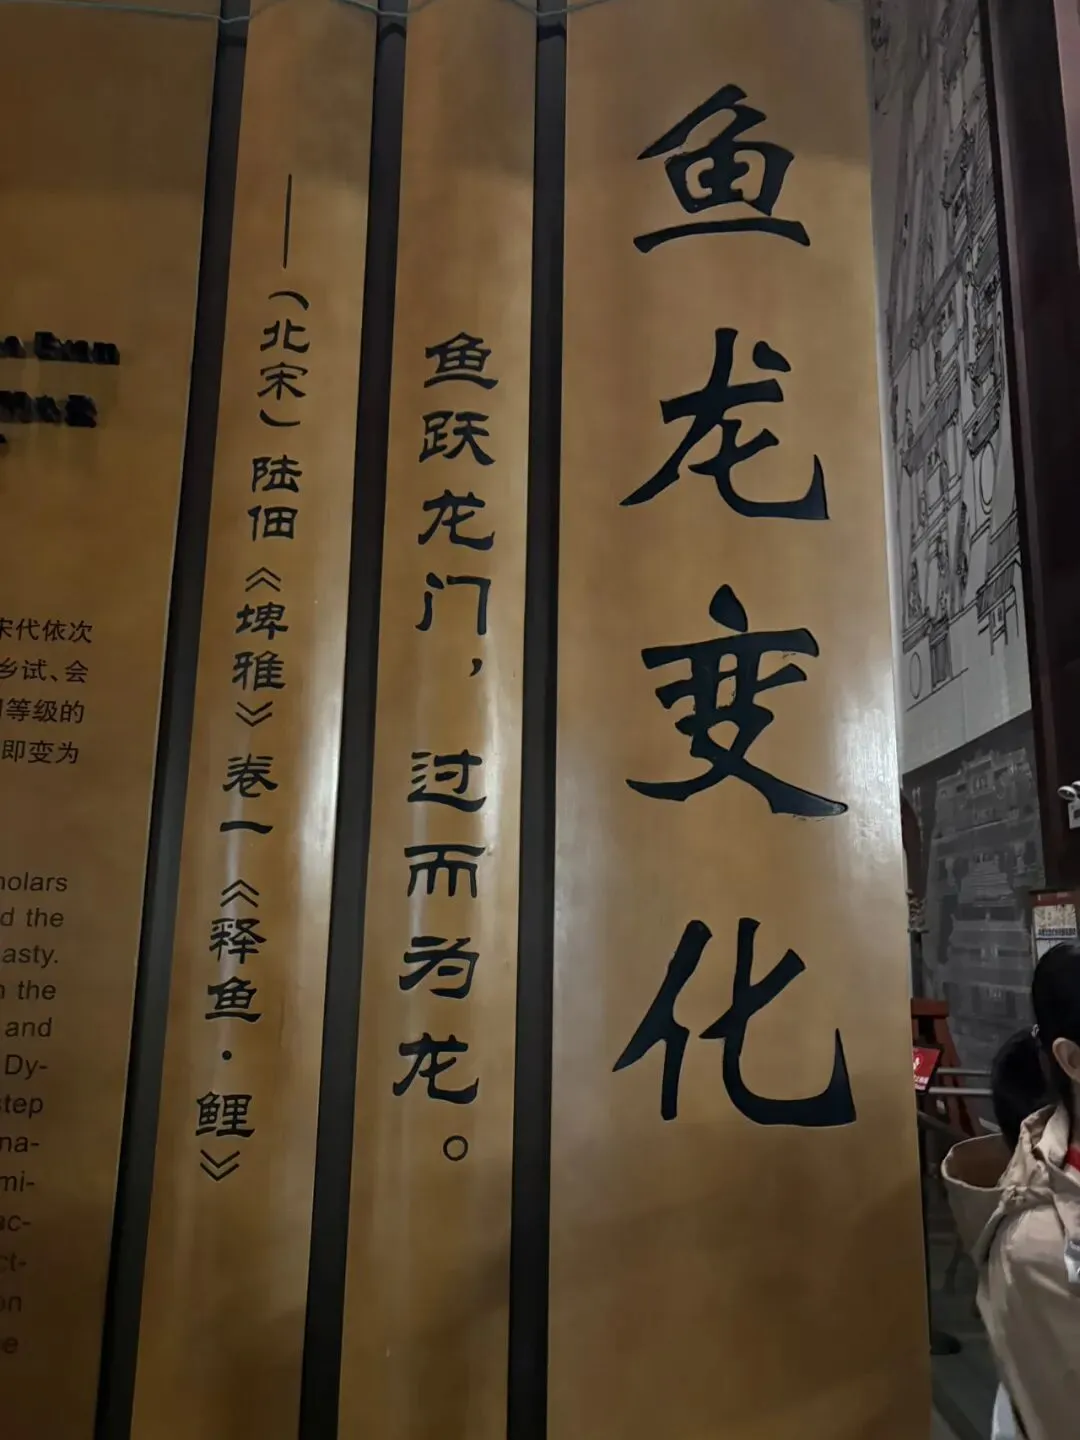 鱼龙变化
鱼跃龙门，过而为龙。
——（北宋）陆佃《埤雅》卷一《释鱼·鲤》
宋代依次
乡试、会
等级的
即变为
holars
d the
asty.
n the
and
Dy-
step
na-
mi-
ac-
ct-
on